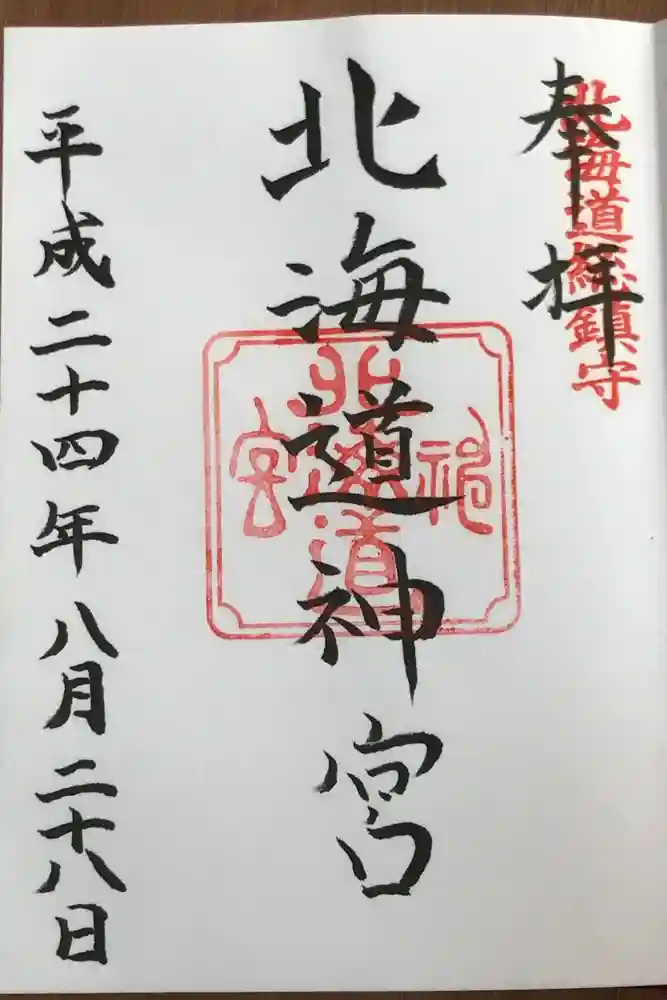 奉拝
北海道總鎮守
北海道神宮
北海道神宮
平成二十四年八月二十八日